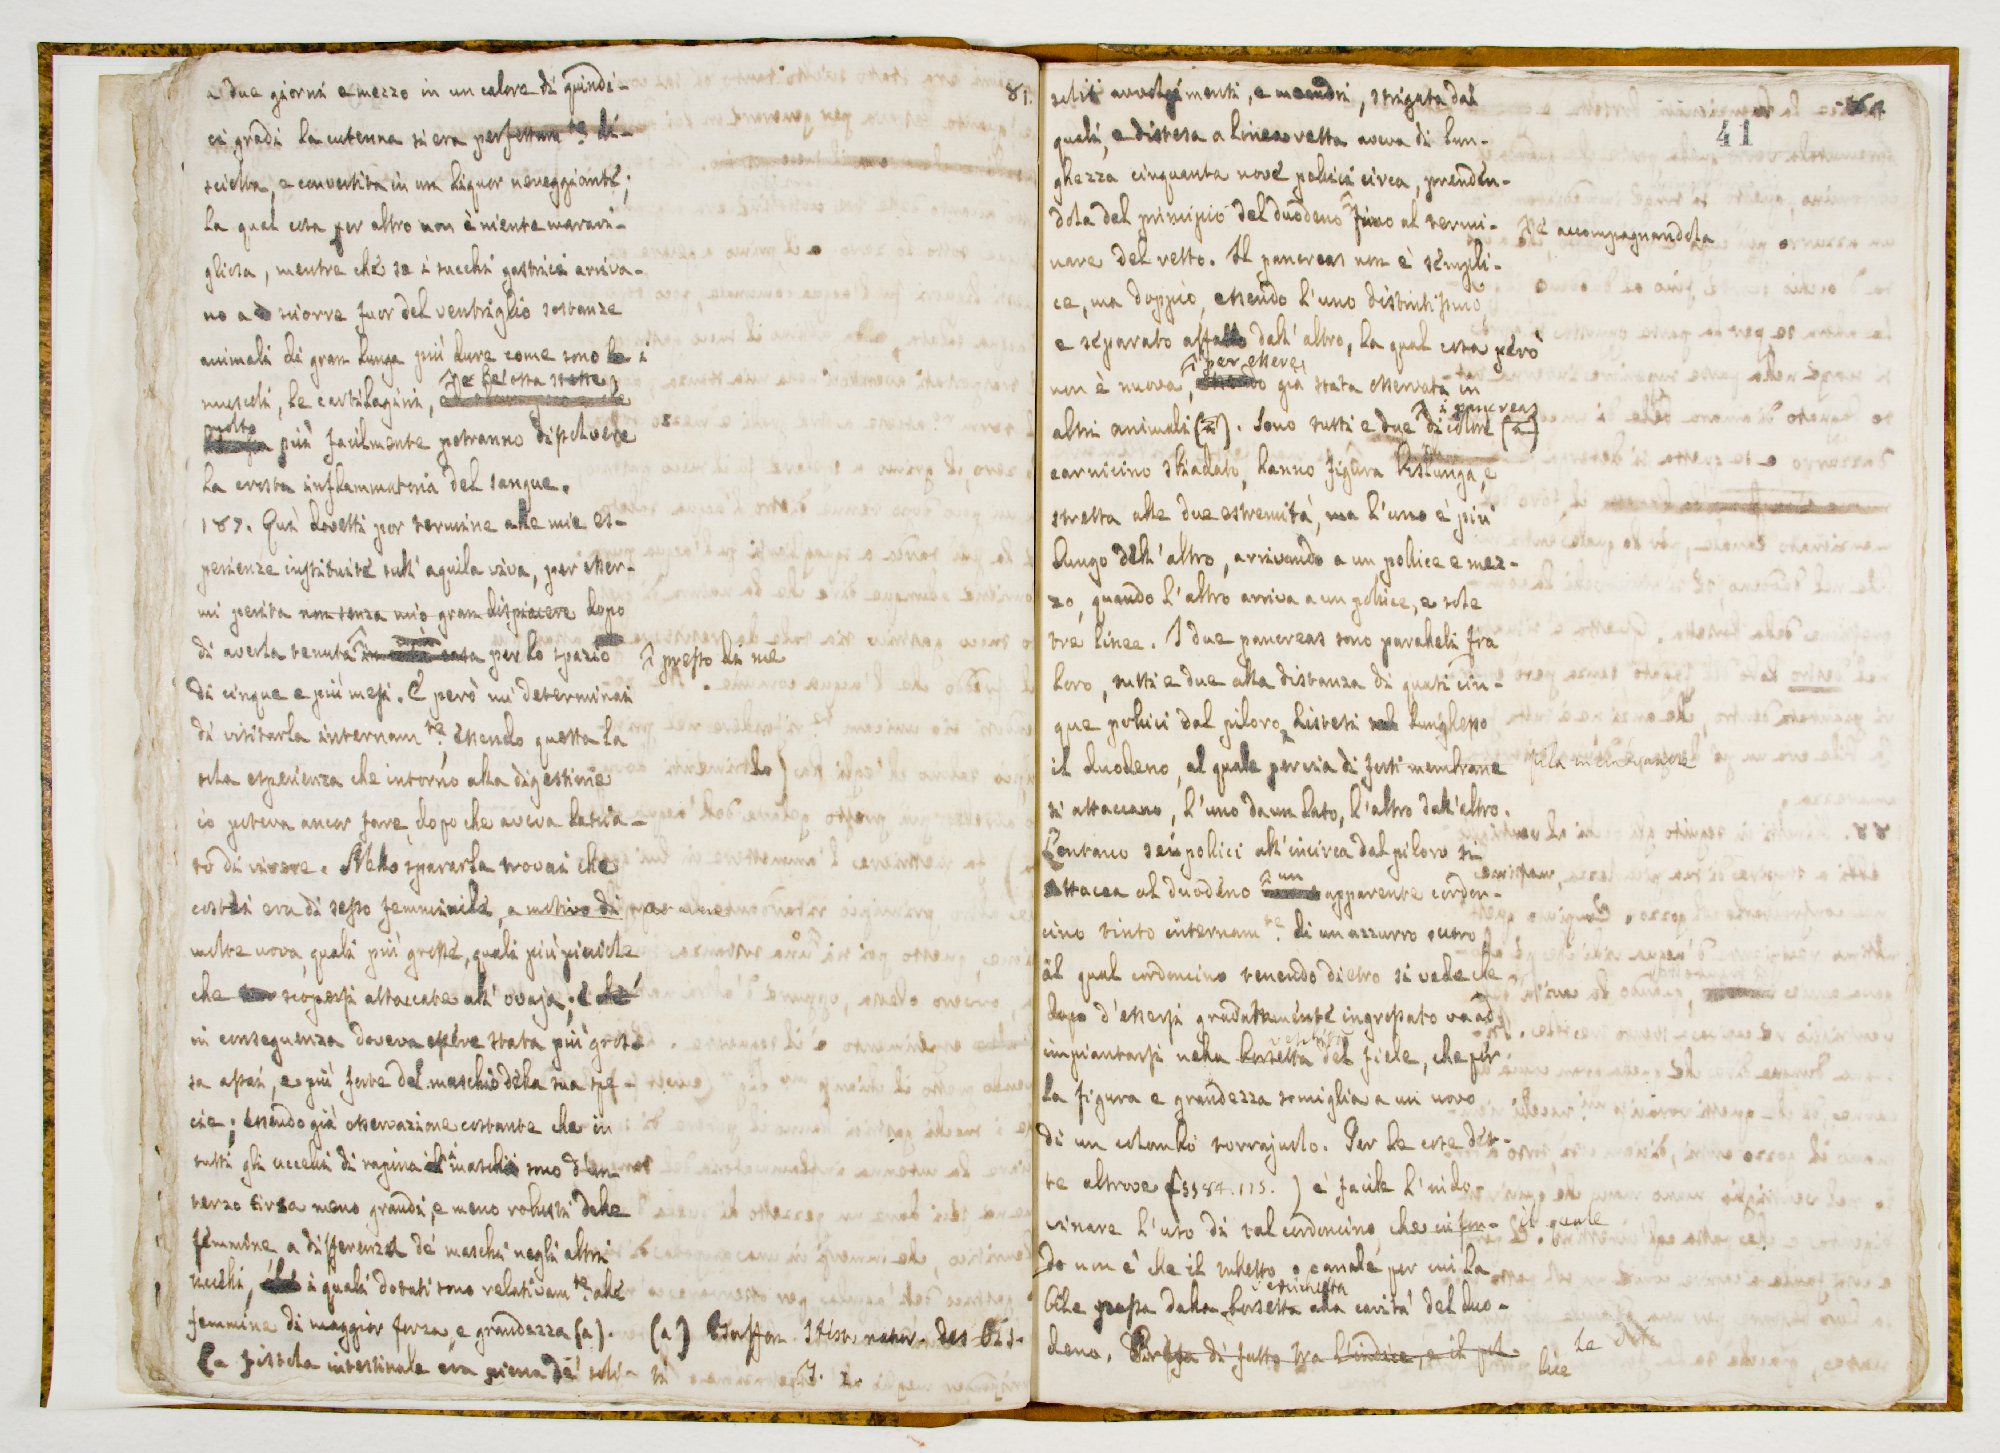 81.
a due giorni e mezzo in un calore di quindi-
ci gradi la cutenna si era perfettam.te di-
sciolta, e convertita in un liquor nereggiante;
la qual cosa per altro non è niente maravi-
gliosa, mentre che se i succhi gastrici arriva-
no a sciorre fuor del ventriglio sostanze
animali di gran lunga più dure come sono i
muscoli, le cartilagini, e le ossa stesse
molto più facilmente potranno dissolvere
la crosta inflammatoria del sangue.
187. Quì dovetti por termine alle mie es-
perienze instituite sull' aquila viva, per esser-
mi perita non senza mio gran dispiacere dopo
di averla tenuta per lo spazio
presso di me
di cinque e più mesi. E però mi determinai
di visitarla internam.te, essendo questa la
sola esperienza che intorno alla digestione
io poteva ancor fare, dopo che aveva lascia-
to di vivere. Nello spararla trovai che
costei era di sesso femminile, a motivo di
molte uova, quali più grosse, quali più picciole
che scopersi attaccate all' ovaja; e
in conseguenza doveva essere stata più gros-
sa assai, e più forte del maschio della sua spe-
cie; essendo già osservazione costante che in
tutti gli uccelli di rapina i maschi sono d'un
terzo circa meno grandi, e meno robusti delle
femmine a differenza de' maschi negli altri
uccelli, i quali dotati sono relativam.te alle
femmine di maggior forza, e grandezza (a).
(a) Buffon Hist. natur. des Ois.
T. 1.
La fistola intestinale era piena de' soli-
ti
41
soliti avvolgimenti, e meandri, strigata dai
quali, e distesa a linea retta aveva di lun-
ghezza cinquanta nove pollici circa, prenden-
dola dal principio del duodeno fino al termi-
e accompagnandola
nare del retto. Il pancreas non è sempli-
ce, ma doppio, essendo l'uno distintissimo,
e separato affatto dall' altro, la qual cosa però
non è nuova, per essere già stata osservata in
altri animali (a). Sono tutti e due i pancreas di colore (a)
carnicino sbiadato, hanno figura bislunga, e
stretta alle due estremità, ma l'uno è più
lungo dell' altro, arrivando a un pollice e mez-
zo, quando l'altro arriva a un pollice, e sole
tre linee. I due pancreas sono paralleli fra
loro, tutti e due alla distanza di quasi cin-
que pollici dal piloro, distesi lunghesso
il duodeno, al quale per via di forti membrane
si attaccano, l'uno da un lato, l'altro dall' altro.
Lontano sei pollici all' incirca dal piloro si
attacca al duodeno un apparente cordon-
cino tinto internam.te di un azzurro scuro,
al qual cordoncino tenendo dietro si vede che
dopo d'essersi gradatamente ingrossato va ad
impiantarsi nella borsetta del fiele, che per
la figura e grandezza somiglia a un uovo
di un colombo torrajuolo. Per le cose det-
te altrove (§§ 84. 115.) è facile l'indo-
vinare l'uso di tal cordoncino, che in fon-
il quale
do non è che il tubetto o canale per cui la
vescichetta
bile passa dalla borsetta alla cavità del duo-
deno. Presa di fatto tra l'indice, e il pol-
lice